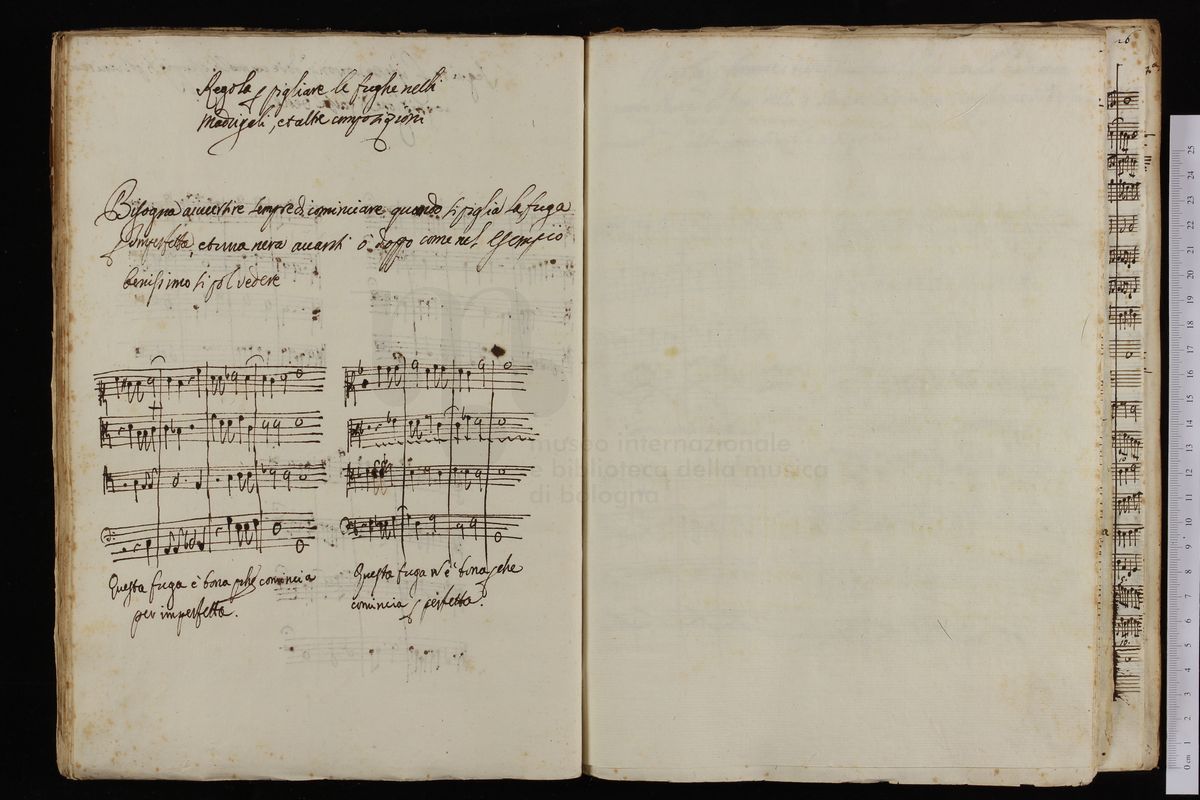 Regola p pigliare le fughe nelli
Madrigali, et altre compositioni
Bisogna avvertire sempre di cominciare quando si piglia la fuga
p imperfetta, et una nera avanti ò doppo come nel Esempio
benissimo si pol vedere
Questa fuga è bona pche comincia
per imperfetta.
Questa fuga nò è bona pche
comincia p perfetta.
museo internazionale
e biblioteca della musica
di bologna
26
0 cm 1 2 3 4 5 6 7 8 9 10 11 12 13 14 15 16 17 18 19 20 21 22 23 24 25